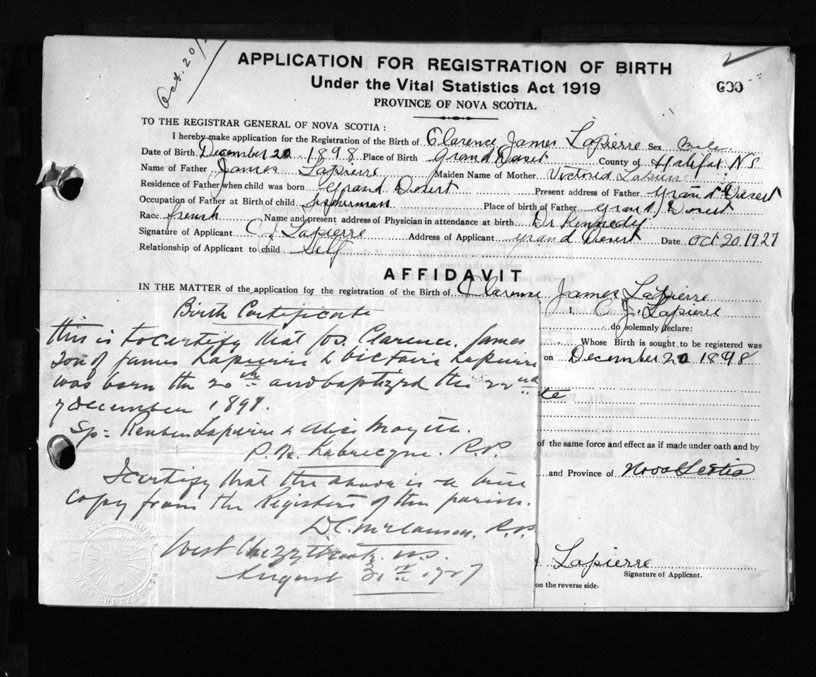 Oct. 20/
APPLICATION FOR REGISTRATION OF BIRTH
Under the Vital Statistics Act 1919
PROVINCE OF NOVA SCOTIA.
TO THE REGISTRAR GENERAL OF NOVA SCOTIA :
I hereby make application for the Registration of the Birth of Clarence James Lapierre Sex Male
Date of Birth December 20 1898 Place of Birth Grand Desert County of Halifax N.S
Name of Father James Lapierre Maiden Name of Mother Victoria
Residence of Father when child was born Grand Desert Present address of Father Grand Desert
Occupation of Father at Birth of child fisherman Place of birth of Father Grand Desert
Race french Name and present address of Physician in attendance at birth Dr Kennedy
Signature of Applicant C J Lapierre Address of Applicant Grand Desert Date Oct 20. 1927
Relationship of Applicant to child Self
AFFIDAVIT
IN THE MATTER of the application for the registration of the Birth of Clarence James Lapierre
I, C. J. Lapierre
do solemnly declare:
Whose Birth is sought to be registered was
on December 20 1898
of the same force and effect as if made under oath and by
and Province of Nova Scotia
Lapierre
Signature of Applicant.
on the reverse side.
Birth Certificate
This is to certify that Jos. Clarence James
son of James Lapierre & Victoire Lapierre
was born the 20th and baptized the 22nd
December 1898.
Sp= Reuben Lapierre &
R.P.
I certify that the above is a true
copy from the Registers of this parish.
R.P.
West Chezzetcook. N.S.
August 31st 1927